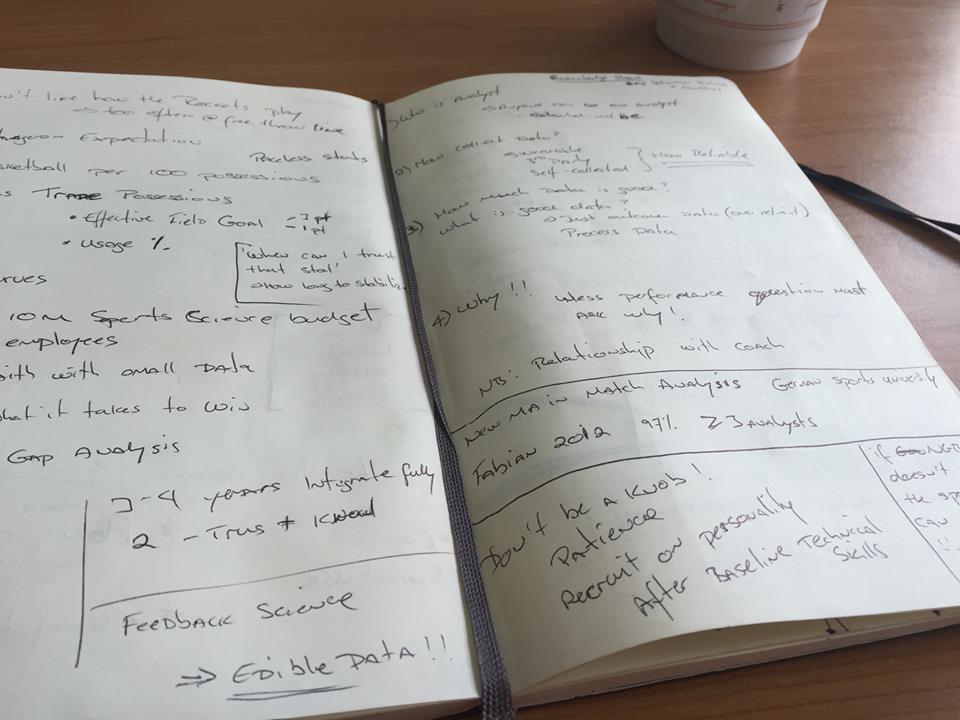 n't like how the Rockets play
→ too often @ free throw line
Expectation
Paceless stats
sketball per 100 possessions
s Possessions
• Effective Field Goal - 3 pt
- 1 pt
• usage %
"When can I trust
that stat'
→ How long to stabiliz
rves
10M Sports Science budget
employees
with small Data
hat it takes to win
Gap Analysis
3-4 years Integrate fully
2 - Trust +
Feedback Science
⇒ Edible Data!!
Who is Analyst
→ Anyone can be an analyst
be
2) How collect Data?
→ wearable
3rd Party
self-collected
How Reliable
How much Data is good?
3) What is good data?
→ Just outcome Data
Process Data
4) Why!! unless performance question must
ask why!
NB: Relationship with coach
New MA in Match Analysis German sports university
Fabian 2012 97% ≥3 Analysts
Don't be a Knob!
Patience
Recruit on personality
After Baseline Technical
Skills
if
doesn't
the sp
can
!!